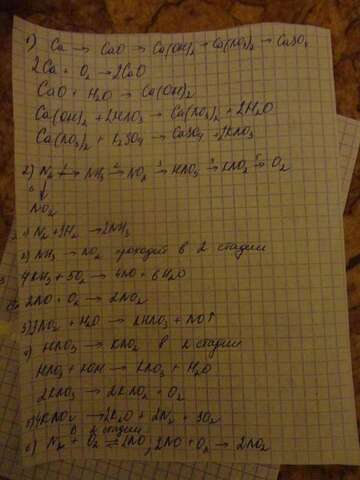 1) Ca → CaO → Ca(OH)2 → Ca(NO3)2 → CaSO4
2Ca + O2 → 2CaO
CaO + H2O → Ca(OH)2
Ca(OH)2 + 2HNO3 → Ca(NO3)2 + 2H2O
Ca(NO3)2 + K2SO4 → CaSO4 + 2KNO3
2) N2 1→ NH3 2→ NO2 3→ HNO3 4→ KNO2 5→ O2
6↓
NO2
1) N2 + 3H2 → 2NH3
2) NH3 → NO2 проходит в 2 стадии
4NH3 + 5O2 → 4NO + 6H2O
2NO + O2 → 2NO2
3) 3NO2 + H2O → 2HNO3 + NO↑
4) HNO3 → KNO2 в 2 стадии
HNO3 + KOH → KNO3 + H2O
2KNO3 → 2KNO2 + O2
5) 4KNO2 → 2K2O + 2N2 + 3O2
в 2 стадии
6) N2 + O2 ⇌ 2NO, 2NO + O2 → 2NO2